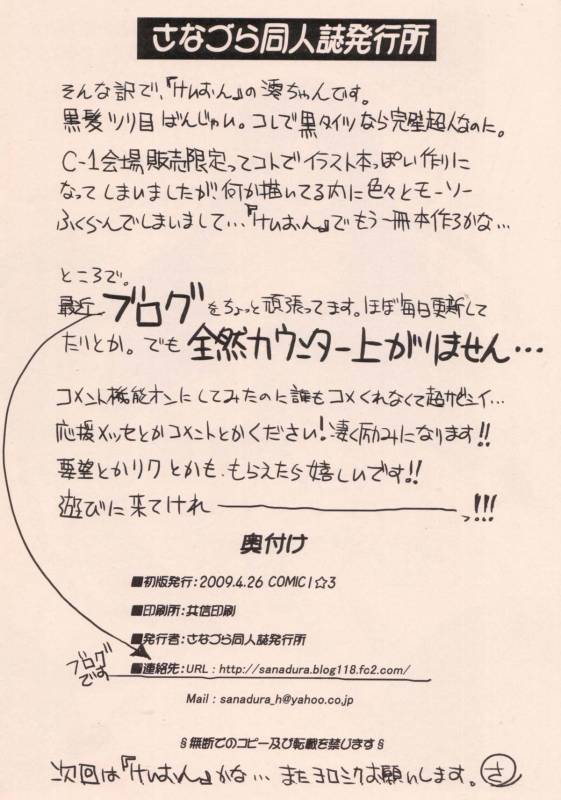 さなづら同人誌発行所
そんな訳で、『けいおん』の澪ちゃんです。
黒髪ツリ目ばんじゃい。コレで黒タイツなら完璧超人なのに。
C-1会場販売限定ってコトでイラスト本っぽい作りに
なってしまいましたが、何か描いてる内に色々とモーソー
ふくらんでしまいまして…『けいおん』でもう一冊本作ろかな…
ところで。
最近ブログをちょっと頑張ってます。ほぼ毎日更新して
たりとか。でも全然カウンター上がりません…
コメント機能オンにしてみたのに誰もコメくれなくて超サビシイ…
応援メッセとかコメントとかください!凄く励みになります!!
要望とかリクとかも、もらえたら嬉しいです!!
遊びに来てけれ――――――――っ!!!
奥付け
■初版発行:2009.4.26 COMIC1☆3
■印刷所:共信印刷
■発行者:さなづら同人誌発行所
■連絡先:URL:http://sanadura.blog118.fc2.com/
ブログ
です
Mail:sanadura_h@yahoo.co.jp
§無断でのコピー及び転載を禁じます§
次回は『けいおん』かな… またヨロシクお願いします。さ